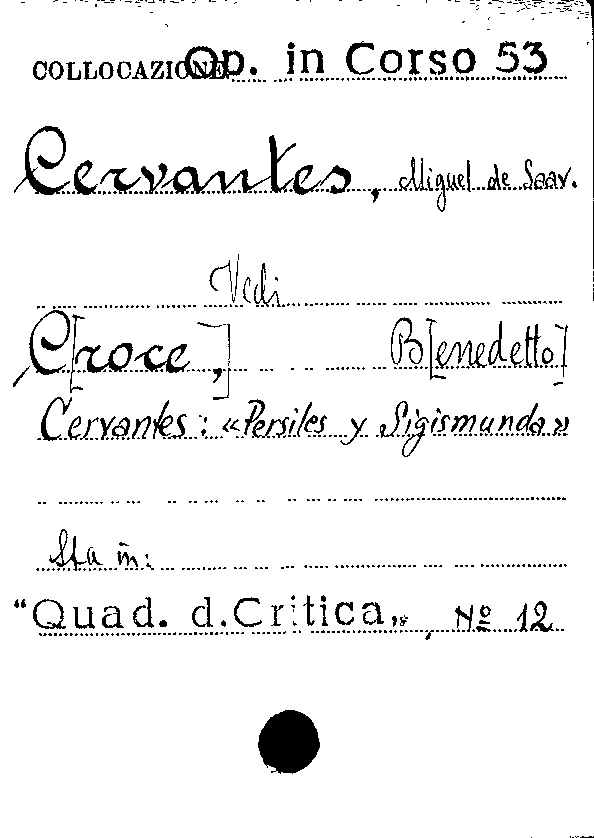 COLLOCAZIONE Op. in Corso 53
Cervantes, Miguel de Saav.
Vedi
C[roce,] B[enedetto]
Cervantes: «Persiles y Sigismunda»
Sta in:
"Quad. d. Critica„, Nº 12